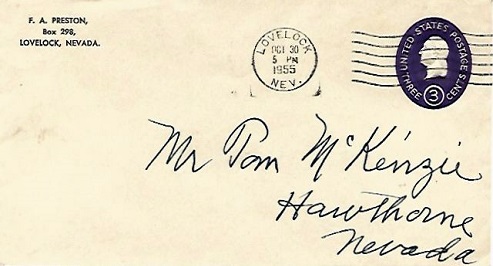 F. A. PRESTON,
Box 298,
LOVELOCK, NEVADA.
LOVELOCK
OCT 30
5 PM
1955
NEV.
UNITED STATES POSTAGE
THREE 3 CENTS
Mr Tom McKenzie
Hawthorne
Nevada